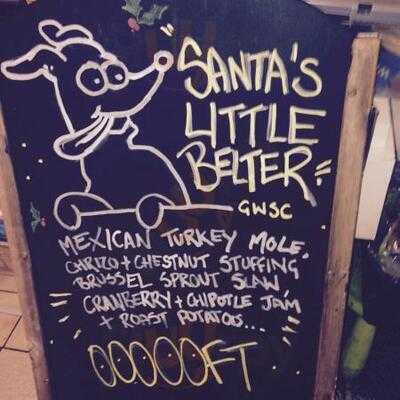 SANTA'S
LITTLE
BELTER
GWSC
MEXICAN TURKEY MOLE,
CHRIZO + CHESTNUT STUFFING
BRUSSEL SPROUT SLAW,
CRANBERRY + CHIPOTLE JAM
+ ROAST POTATOES...
OOOOOFT